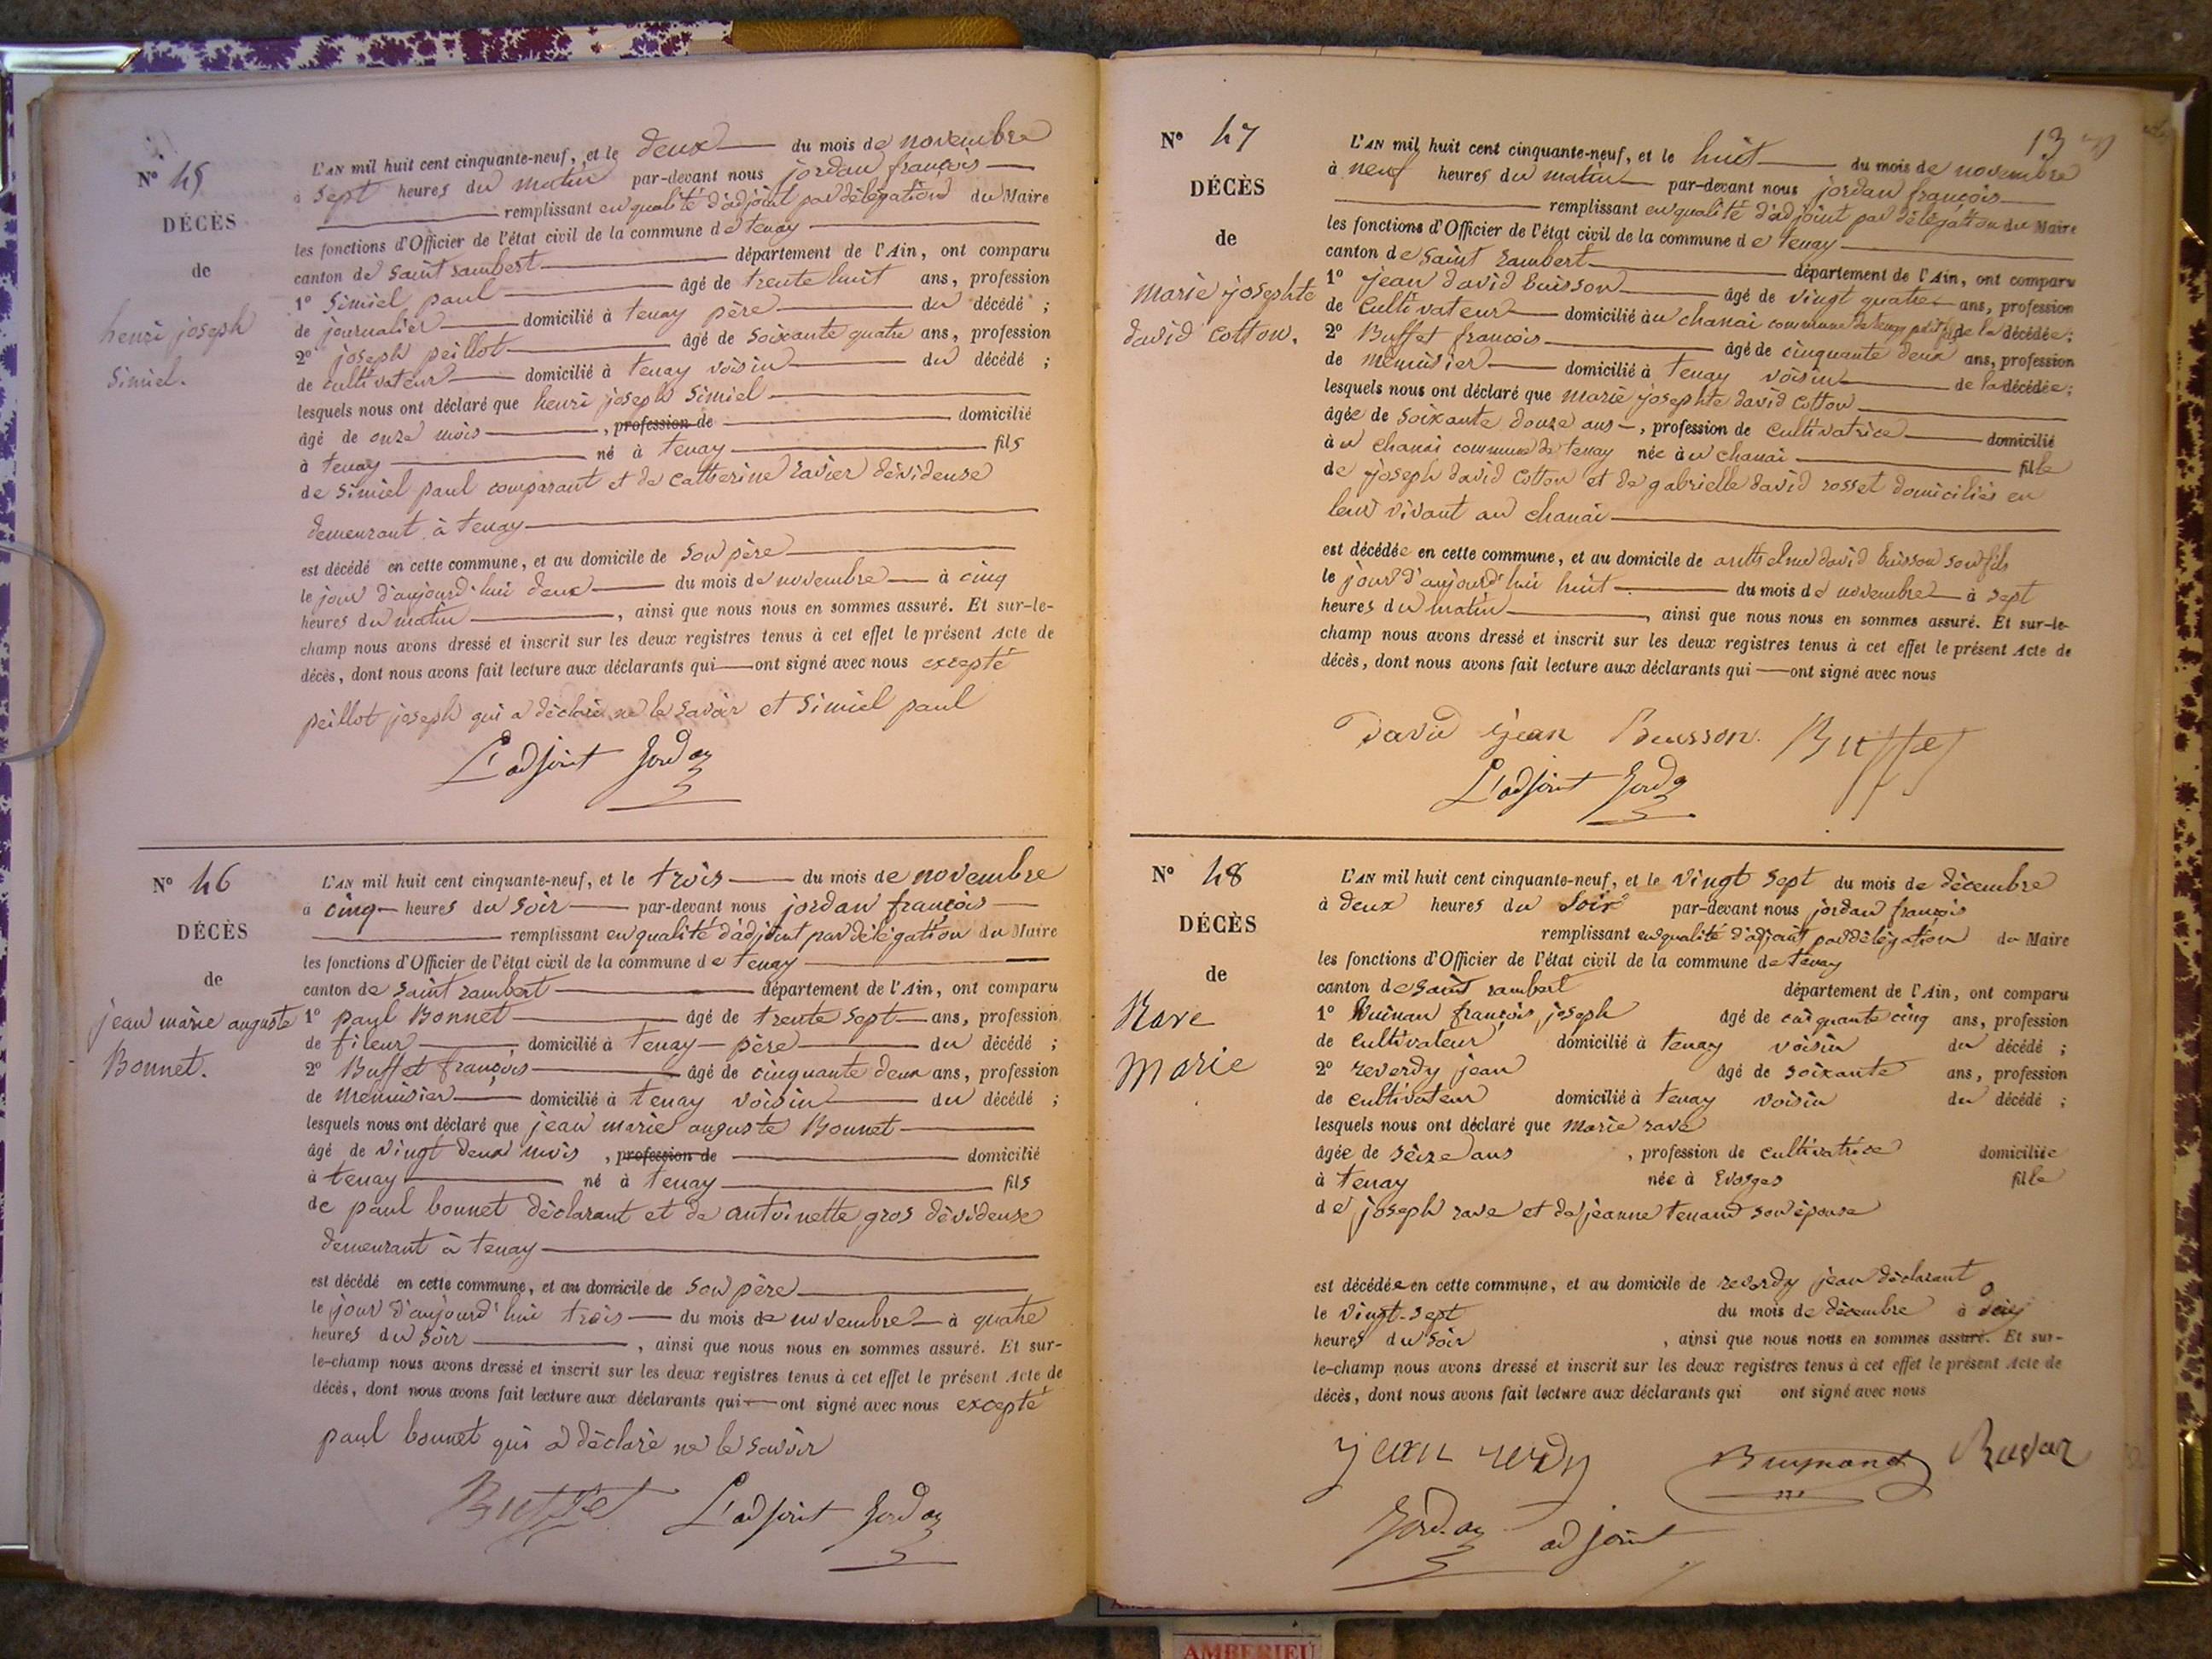 N° 45
DÉCÈS
de
henri joseph
Simiel.
L'AN mil huit cent cinquante-neuf, et le deux du mois de novembre
à sept heures du matin par-devant nous jordan françois
remplissant en qualité d'adjoint par délégation du Maire
les fonctions d'Officier de l'état civil de la commune de tenay
canton de Saint rambert département de l'Ain, ont comparu
1° Simiel paul âgé de trente huit ans, profession
de journalier domicilié à tenay père du décédé ;
2° joseph peillot âgé de Soixante quatre ans, profession
de cultivateur domicilié à tenay voisin du décédé ;
lesquels nous ont déclaré que henri joseph Simiel
âgé de onze mois , profession de domicilié
à tenay né à tenay fils
de Simiel paul comparant et de catherine ravier dévideuse
demeurant à tenay
est décédé en cette commune, et au domicile de Son père
le jour d'aujourd'hui deux du mois de novembre à cinq
heures du matin , ainsi que nous nous en sommes assuré. Et sur-le-
champ nous avons dressé et inscrit sur les deux registres tenus à cet effet le présent Acte de
décès, dont nous avons fait lecture aux déclarants qui ont signé avec nous excepté
peillot joseph qui a déclaré ne le Savoir et Simiel paul
L'adjoint Jordan
N° 46
DÉCÈS
de
jean marie auguste
Bonnet.
L'AN mil huit cent cinquante-neuf, et le trois du mois de novembre
à cinq heures du Soir par-devant nous jordan françois
remplissant en qualité d'adjoint par délégation du Maire
les fonctions d'Officier de l'état civil de la commune de tenay
canton de Saint rambert département de l'Ain, ont comparu
1° paul Bonnet âgé de trente Sept ans, profession
de fileur domicilié à tenay père du décédé ;
2° Buffet françois âgé de cinquante deux ans, profession
de Menuisier domicilié à tenay voisin du décédé ;
lesquels nous ont déclaré que jean marie auguste Bonnet
âgé de vingt deux mois , profession de domicilié
à tenay né à tenay fils
de paul bonnet déclarant et de antoinette gros dévideuse
demeurant à tenay
est décédé en cette commune, et au domicile de Son père
le jour d'aujourd'hui trois du mois de novembre à quatre
heures du Soir , ainsi que nous nous en sommes assuré. Et sur-
le-champ nous avons dressé et inscrit sur les deux registres tenus à cet effet le présent Acte de
décès, dont nous avons fait lecture aux déclarants qui ont signé avec nous excepté
paul bonnet qui a déclaré ne le Savoir
Buffet L'adjoint Jordan
13
N° 47
DÉCÈS
de
marie josephte
david Cotton.
L'AN mil huit cent cinquante-neuf, et le huit du mois de novembre
à neuf heures du matin par-devant nous jordan françois
remplissant en qualité d'adjoint par délégation du Maire
les fonctions d'Officier de l'état civil de la commune de tenay
canton de Saint rambert département de l'Ain, ont comparu
1° jean david buisson âgé de vingt quatre ans, profession
de Cultivateur domicilié au chanai commune de tenay petit fils de la décédée ;
2° Buffet françois âgé de cinquante deux ans, profession
de menuisier domicilié à tenay voisin de la décédée ;
lesquels nous ont déclaré que marie josephte david Cotton
âgée de Soixante douze ans , profession de Cultivatrice domicilié
à u chanai commune de tenay née au chanai fille
de joseph david Cotton et de gabrielle david rosset domiciliés en
leur vivant au chanai
est décédée en cette commune, et au domicile de anthelme david buisson Son fils
le jour d'aujourd'hui huit du mois de novembre à Sept
heures du matin , ainsi que nous nous en sommes assuré. Et sur-le-
champ nous avons dressé et inscrit sur les deux registres tenus à cet effet le présent Acte de
décès, dont nous avons fait lecture aux déclarants qui ont signé avec nous
David jean Buisson. Buffet
L'adjoint Jordan
N° 48
DÉCÈS
de
Rave
Marie
L'AN mil huit cent cinquante-neuf, et le Vingt Sept du mois de décembre
à deux heures du Soir par-devant nous jordan françois
remplissant en qualité d'adjoint par délégation du Maire
les fonctions d'Officier de l'état civil de la commune de tenay
canton de Saint rambert département de l'Ain, ont comparu
1° françois joseph âgé de cinquante cinq ans, profession
de Cultivateur domicilié à tenay voisin du décédé ;
2° reverdy jean âgé de Soixante ans, profession
de cultivateur domicilié à tenay voisin du décédé ;
lesquels nous ont déclaré que Marie rave
âgée de Seize ans , profession de cultivatrice domiciliée
à tenay née à Evosges fille
de joseph rave et de jeanne tenand Son épouse
est décédée en cette commune, et au domicile de reverdy jean déclarant
le Vingt-Sept du mois de décembre à
heures du Soir , ainsi que nous nous en sommes assuré. Et sur-
le-champ nous avons dressé et inscrit sur les deux registres tenus à cet effet le présent Acte de
décès, dont nous avons fait lecture aux déclarants qui ont signé avec nous
jean
Jordan adjoint
AMBERIEU